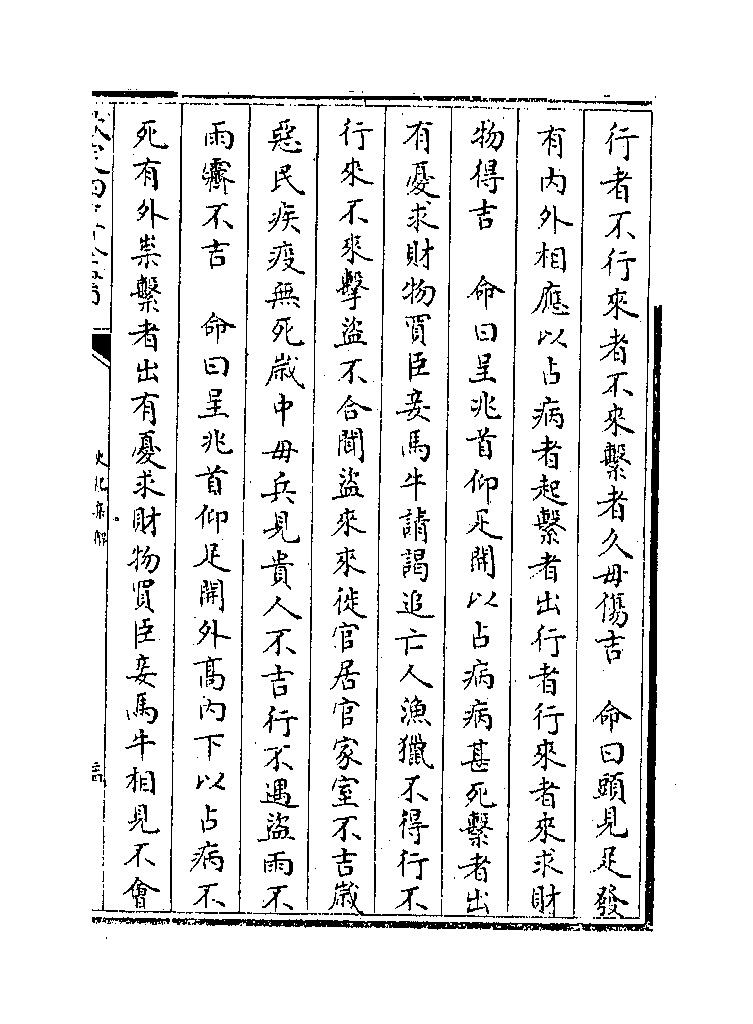 行者不行來者不來繫者久毋傷吉　命曰頭見足發
有内外相應以占病者起繫者出行者行來者來求財
物得吉　命曰呈兆首仰足開以占病病甚死繫者出
有憂求財物買臣妾馬牛請謁追亡人漁獵不得行不
行來不來擊盜不合聞盜來來徙官居官家室不吉嵗
惡民疾疫無死嵗中毋兵見貴人不吉行不遇盜雨不
雨霽不吉　命曰呈兆首仰足開外髙内下以占病不
死有外祟繫者出有憂求財物買臣妾馬牛相見不㑹
史記集解